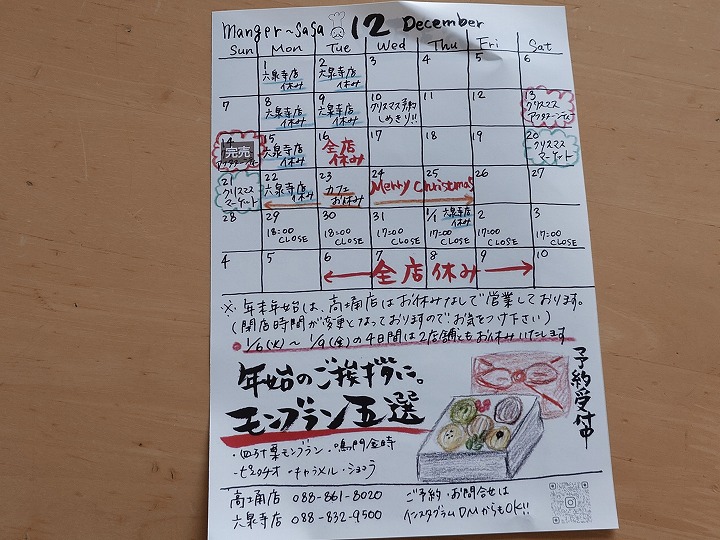 manger~sasa 12 December
Sun Mon Tue Wed Thu Fri Sat
1 2 3 4 5 6
六泉寺店 六泉寺店
休み 休み
7 8 9 10 11 12 13
六泉寺店 六泉寺店 クリスマス予約 クリスマス
休み 休み しめきり!! アフタヌーンティー
14 15 16 17 18 19 20
完売 六泉寺店 全店 クリスマス
アフタヌーンティー 休み 休み マーケット
21 22 23 24 25 26 27
クリスマス 六泉寺店 カフェ Merry Christmas
マーケット 休み お休み
28 29 30 31 1/1 六泉寺店 2 3
休み
18:00 18:00 17:00 17:00 17:00 17:00
CLOSE CLOSE CLOSE CLOSE CLOSE CLOSE
4 5 6 7 8 9 10
全店休み
※ 年末年始は、高塚店はお休みなしで営業しております。
(閉店時間が変更となっておりますので、お気をつけ下さい)
1/6(火)~1/9(金)の4日間は2店舗ともお休みいたします
年始のご挨拶に。
モンブラン五選
予約受付中
・四万十栗モンブラン ・鳴門金時
・ピスタチオ ・キャラメル ・ショコラ
088-861-8020 ご予約・お問合せは
六泉寺店 088-832-9500 インスタグラムDMからもOK!!